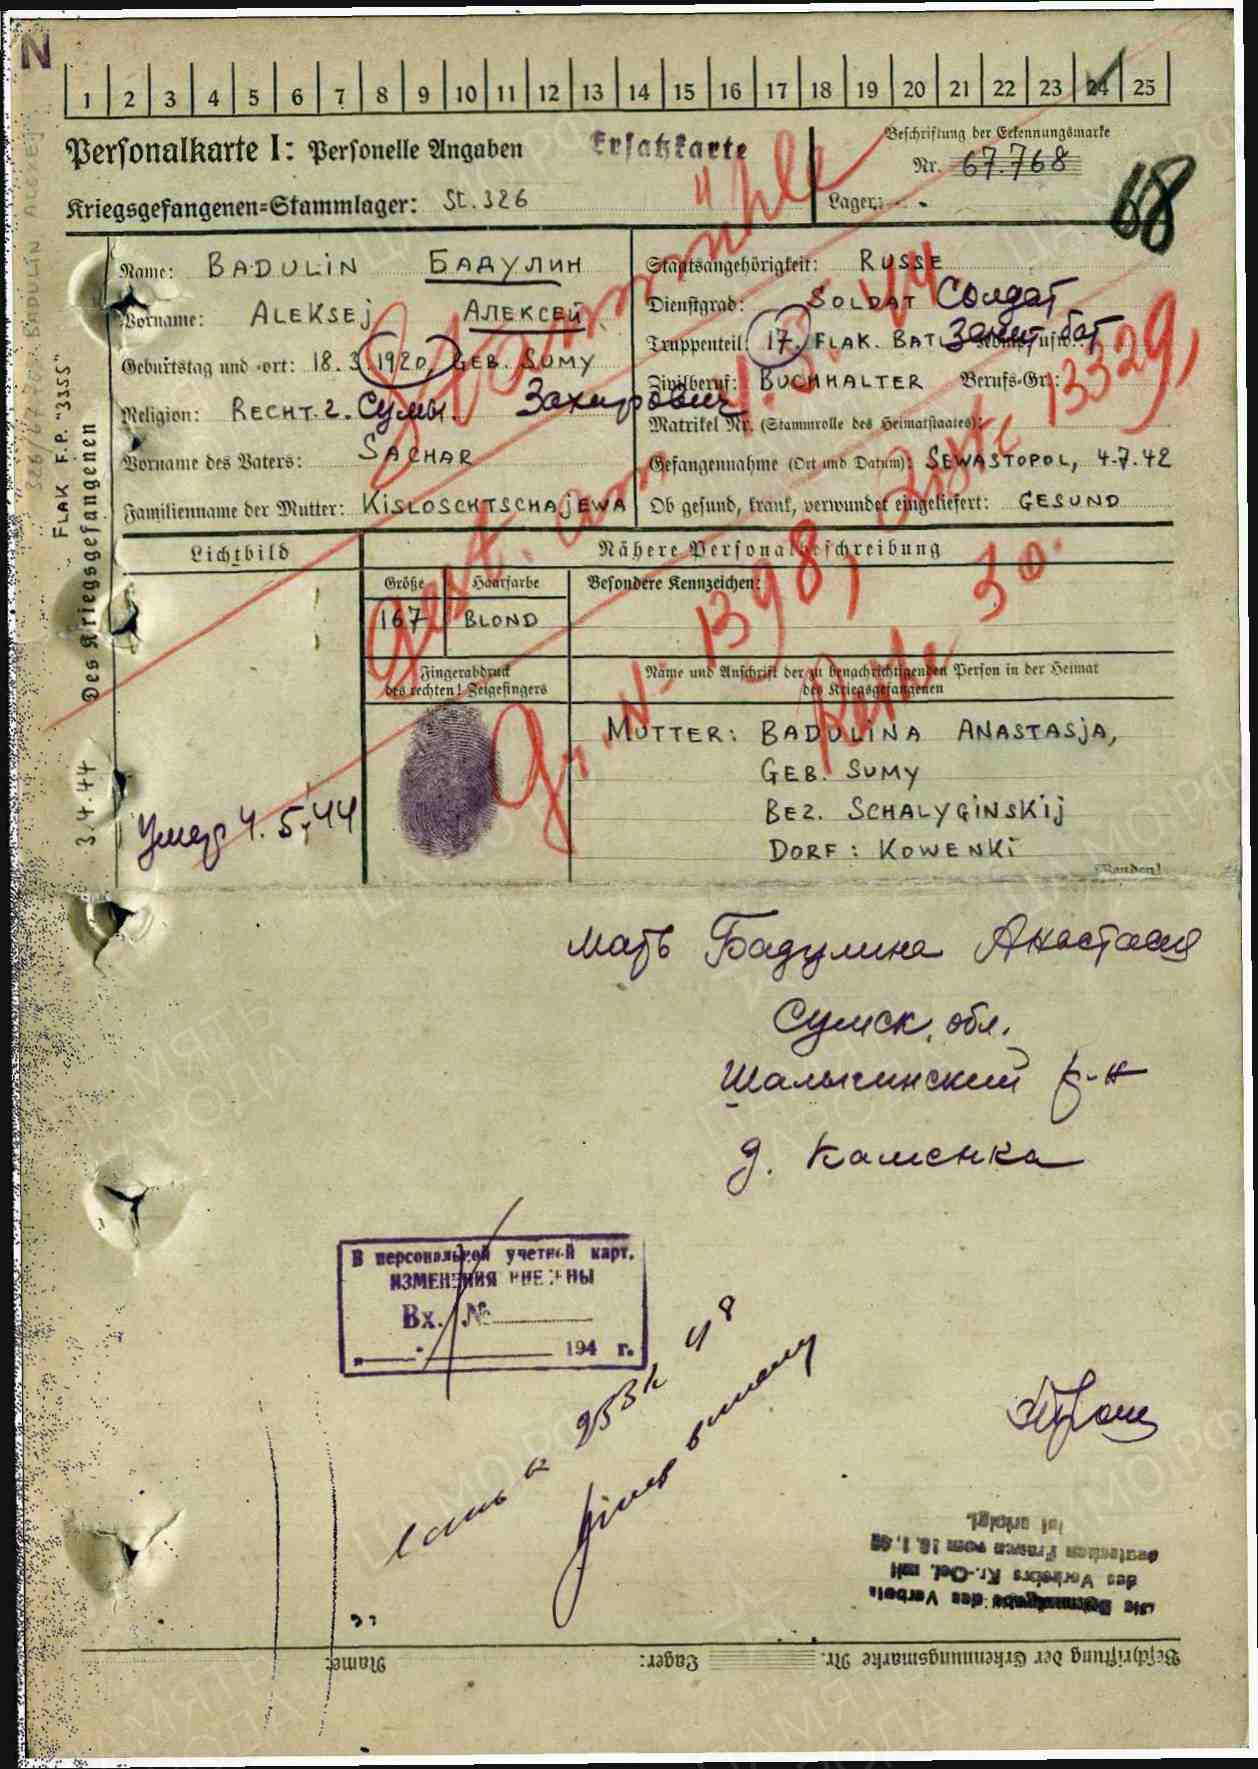 N
1 2 3 4 5 6 7 8 9 10 11 12 13 14 15 16 17 18 19 20 21 22 23 24 25
Personalkarte I: Personelle Angaben
Ersatzkarte
Beschriftung der Erkennungsmarke
Nr. 67.768
Kriegsgefangenen=Stammlager: St. 326
Lager:
68
Name: BADULIN БАДУЛИН
Vorname: ALEKSEJ АЛЕКСЕЙ
Geburtstag und -ort: 18. 3. 1920, GEB. SUMY
Religion: RECHT. 2. Сумы. Захирович
Vorname des Vaters: SACHAR
Familienname der Mutter: KISLOSCHTSCHAJEWA
Staatsangehörigkeit: RUSSE
Dienstgrad: SOLDAT Солдат
Truppenteil: 17. FLAK. BATL Зенит. бат
Zivilberuf: BUCHHALTER Berufs=Gr.:
Matrikel Nr. (Stammrolle des Heimatstaates):
Gefangennahme (Ort und Datum): SEWASTOPOL, 4.7.42
Ob gesund, krank, verwundet eingeliefert: GESUND
Lichtbild
Nähere Personalbeschreibung
Größe Haarfarbe Besondere Kennzeichen:
167 BLOND
Fingerabdruck
des rechten! Zeigefingers
Name und Anschrift der zu benachrichtigenden Person in der Heimat
des Kriegsgefangenen
MUTTER: BADULINA ANASTASJA,
GEB. SUMY
BEZ. SCHALYGINSKIJ
DORF: KOWENKI
Wenden!
Gest. am
44
Liste 13329,
Gr. N- 1398,
Reihe 30.
Des Kriegsgefangenen
FLAK F.P. "3255"
3.4.44
Умер 4.5.44
мать Бадулина Анастасия
Сумск. обл.
Шалыгинский р-н
д. Каменка
В персональной учетной карт.
ИЗМЕНЕНИЯ ВНЕСЕНЫ
Вх. №
194 г.
Die Bekanntgabe des Verbots
des Verkehrs Kr.-Gef. mit
deutschen Frauen vom 10.1.42
ist erfolgt.
Beschriftung der Erkennungsmarke Nr. Lager: Name: